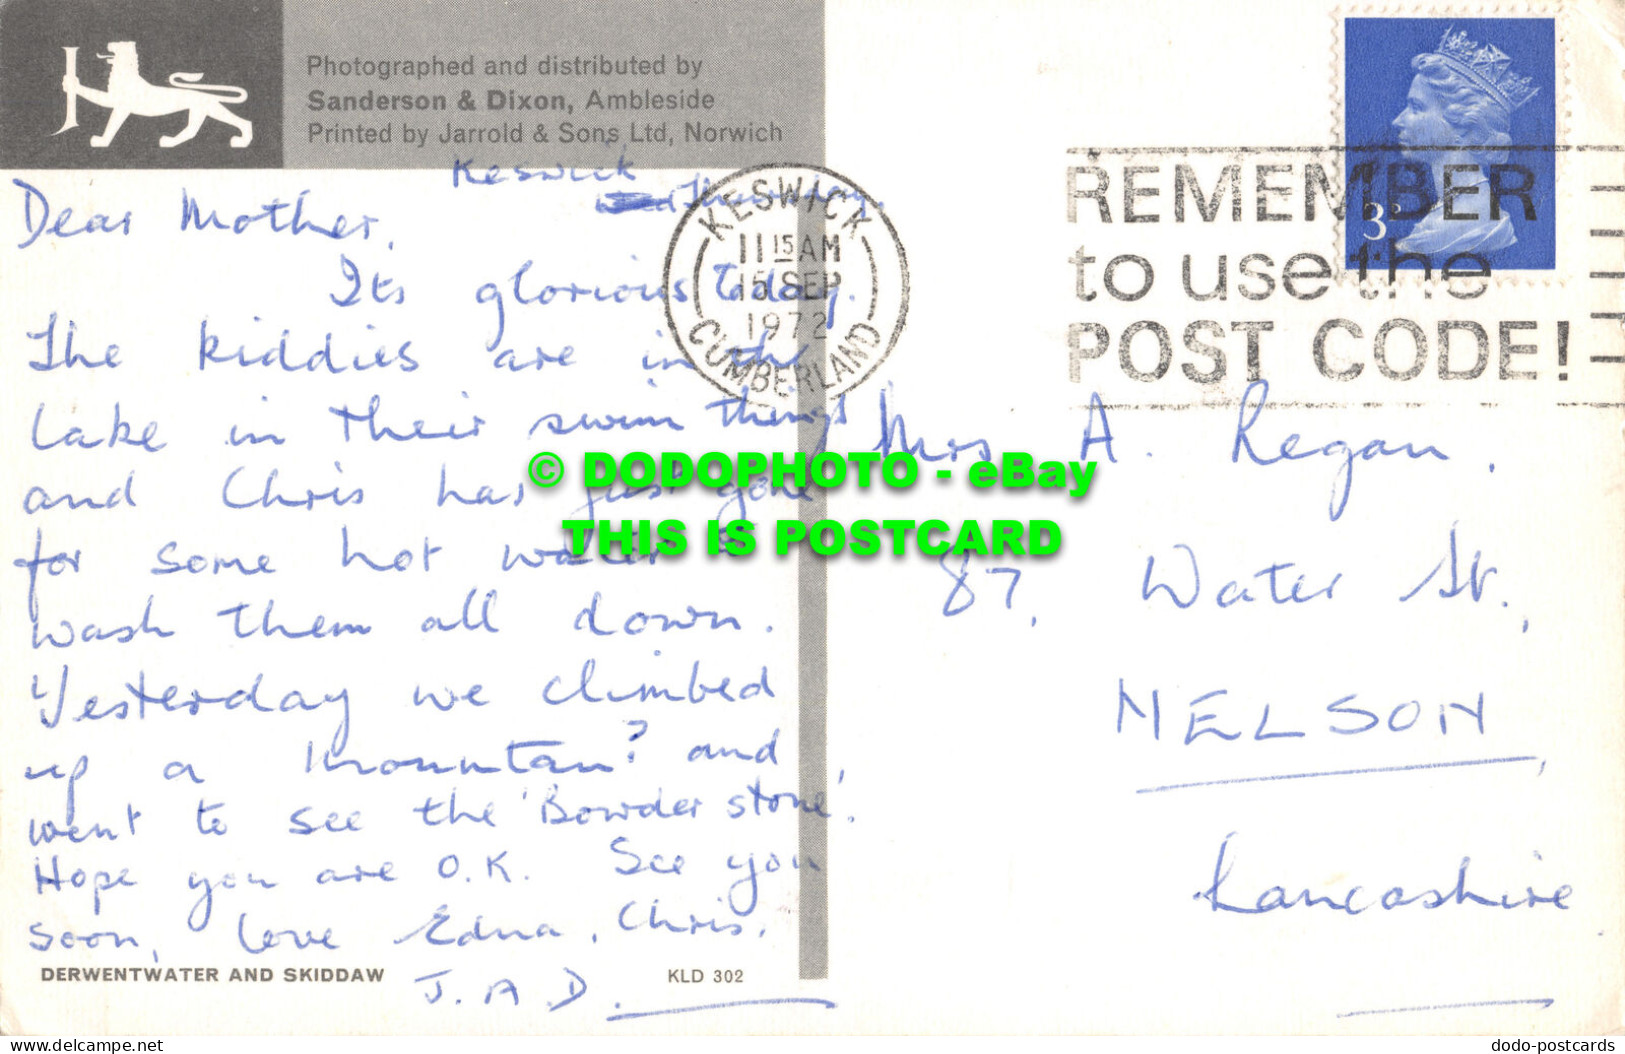 Photographed and distributed by
Sanderson & Dixon, Ambleside
Printed by Jarrold & Sons Ltd, Norwich
Keswick
Thursday.
Dear Mother,
Its glorious today.
The kiddies are in the
lake in their swim things
and Chris has just gone
for some hot water to
wash them all down.
Yesterday we climbed
up a mountan? and
went to see the 'Bowder stone'.
Hope you are O.K. See you
soon, love Edna, Chris,
J. A D.
DERWENTWATER AND SKIDDAW
KLD 302
KESWICK
11 15 AM
15 SEP
1972
CUMBERLAND
REMEMBER
to use the
POST CODE!
3P
Mrs A. Regan,
87, Water St.,
NELSON,
Lancashire
© DODOPHOTO - eBay
THIS IS POSTCARD
delcampe.net
dodo-postcards